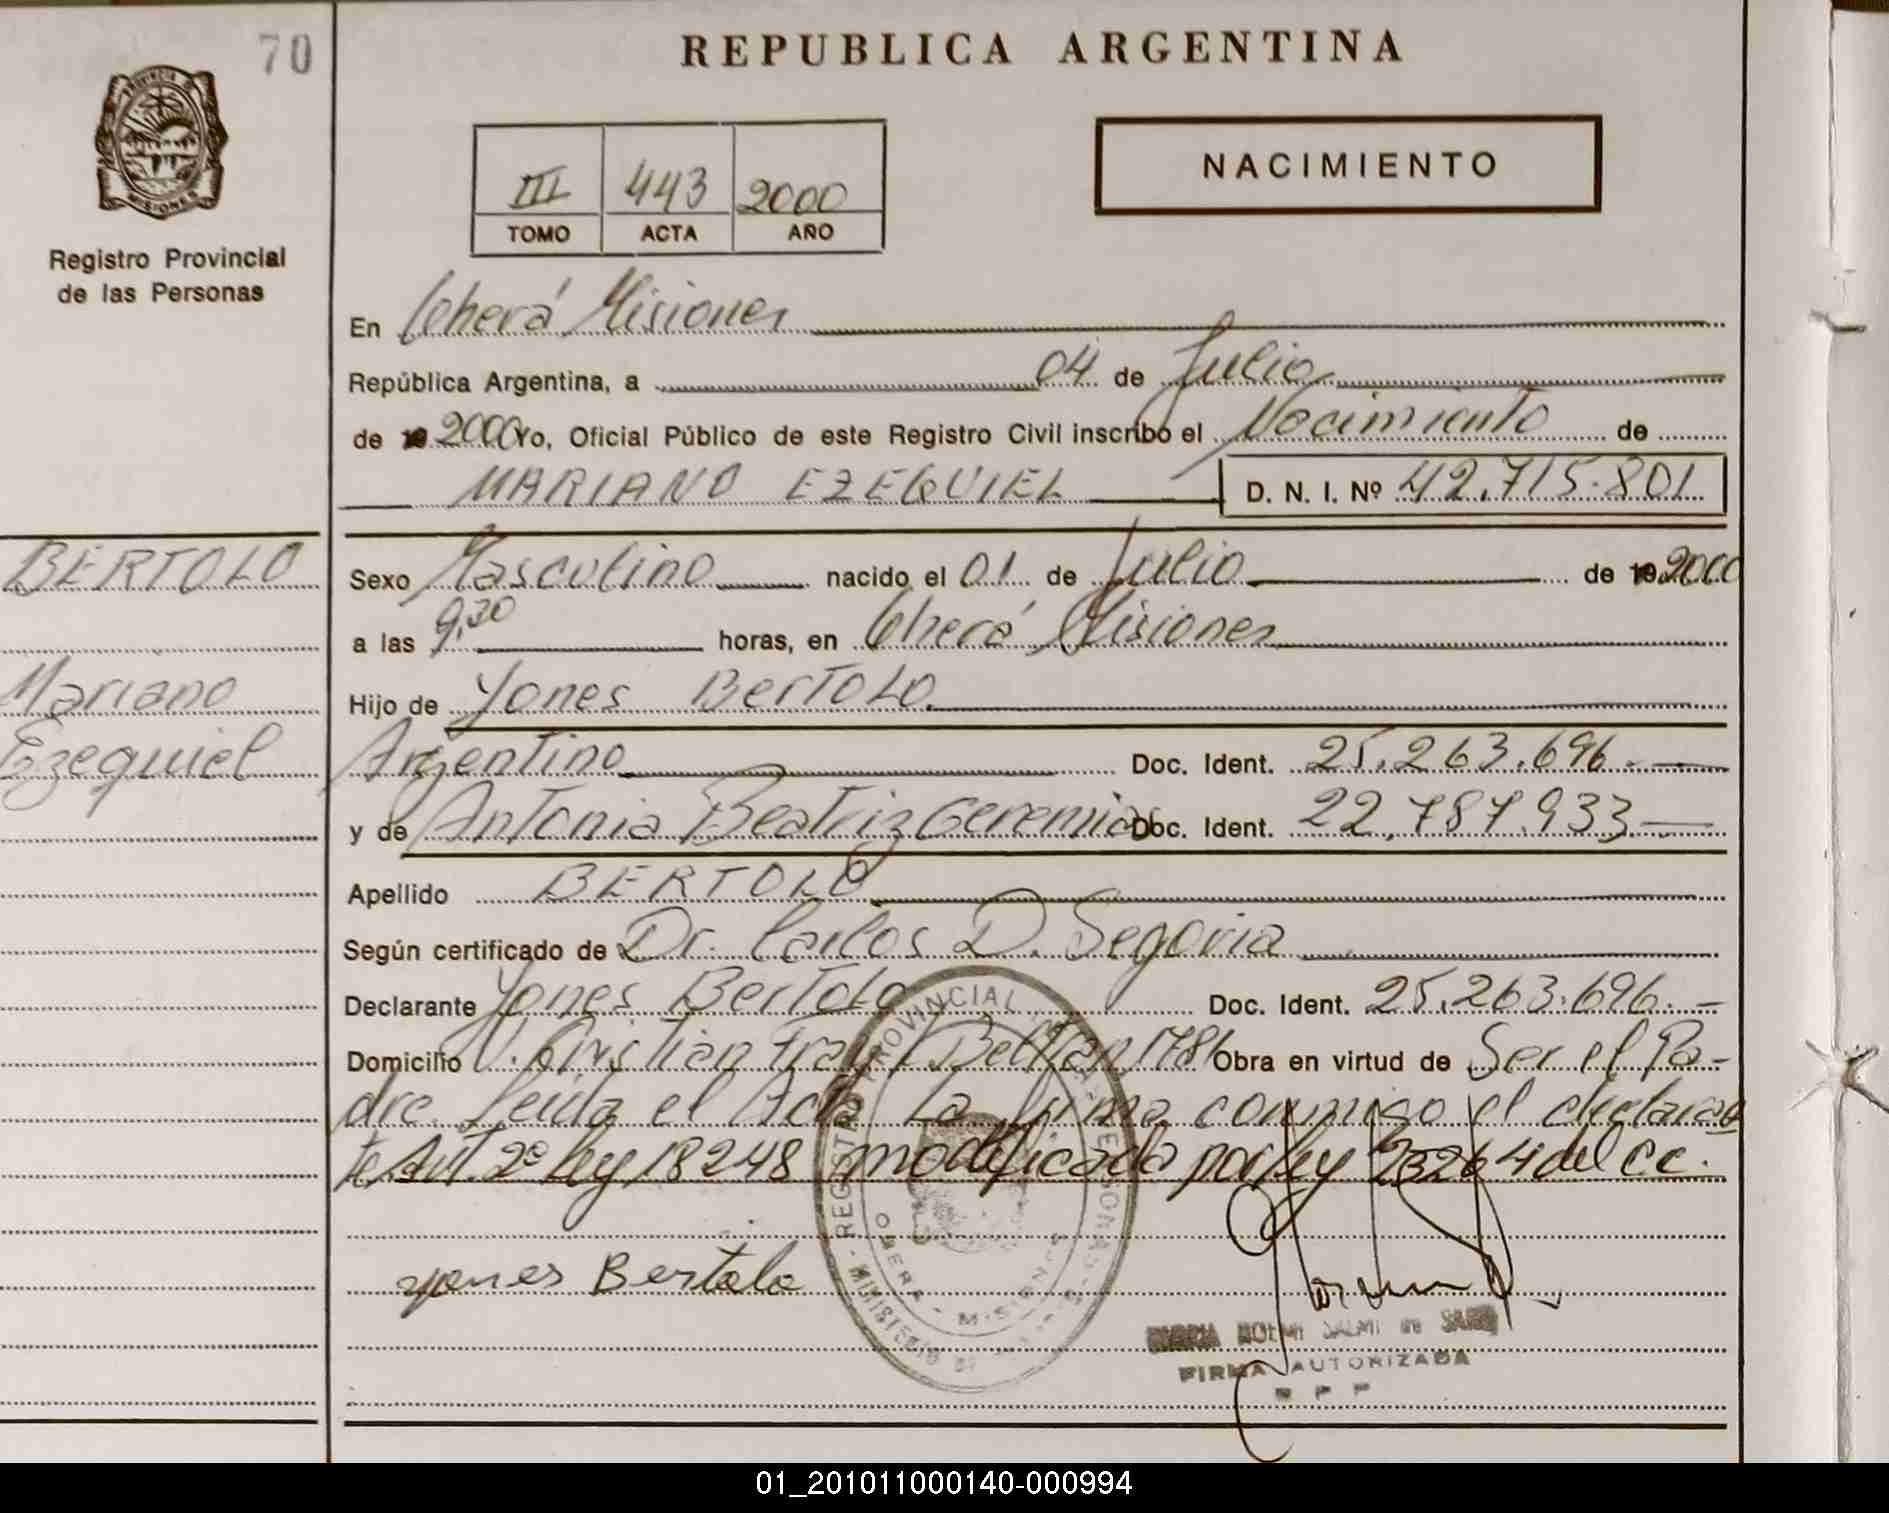 70
REPUBLICA ARGENTINA
PROVINCIA DE MISIONES
Registro Provincial
de las Personas
III 443 2000
TOMO ACTA AÑO
NACIMIENTO
En Oberá Misiones
República Argentina, a 04 de Julio
de 19 2000 Yo, Oficial Público de este Registro Civil inscribo el Nacimiento de
MARIANO EZEQUIEL D. N. I. Nº 42.715.801
BERTOLO
Mariano
Ezequiel
Sexo Masculino nacido el 01 de Julio de 19 2000
a las 9,30 horas, en Oberá Misiones
Hijo de Yones Bertolo
Argentino Doc. Ident. 25.263.696.
y de Antonia Beatriz Geremias Doc. Ident. 22.787.933
Apellido BERTOLO
Según certificado de Dr. Carlos D. Segovia
Declarante Yones Bertolo Doc. Ident. 25.263.696.
Domicilio V. Cristian Fray L Beltran 1786 Obra en virtud de Ser el Pa-
dre. Leida el Acta La firma conmigo el declaran
te Art. 2º Ley 18248 modificada por ley 23264 del CC.
yones Bertolo
REGISTRO PROVINCIAL PERSONAS
OBERA - MISIONES
MINISTERIO DE
NOEMI DE
FIRMA AUTORIZADA
01_201011000140-000994